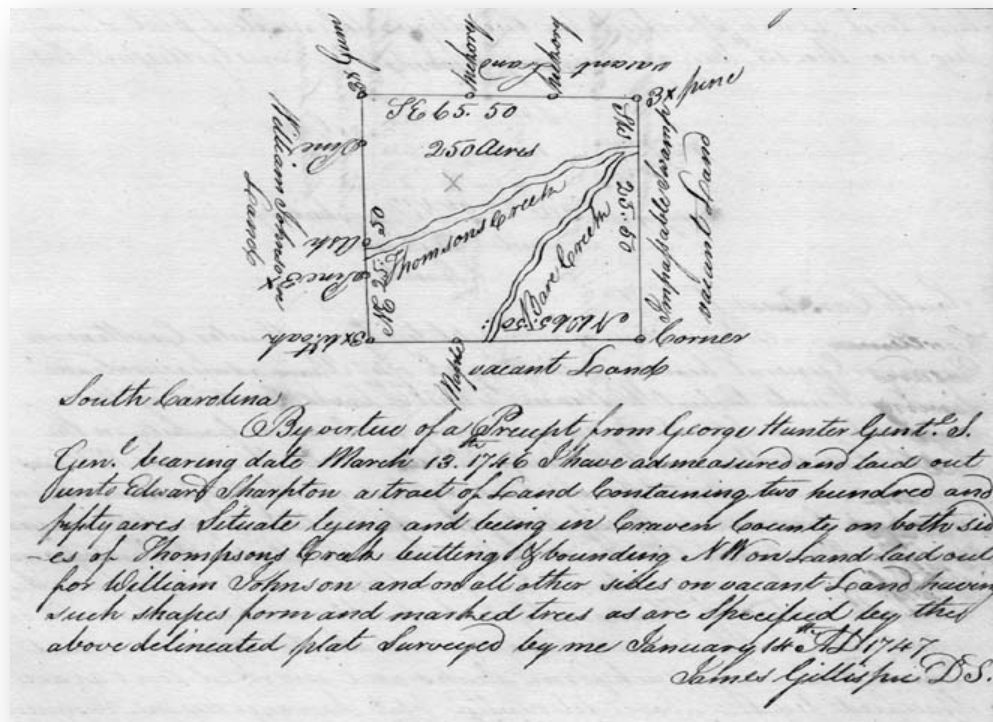 3x Gum
Hickory
Hickory
vacant
Land
3x pine
SE 65. 50
250 Acres
SW 25. 50
Impassable Swamp
vacant Land
Pine
William Johnson
Land
Ash
Pine 3x
Thomsons Creek
Bare Creek
NW 65. 50
3x W. oak
Corner
vacant Land
South Carolina
By virtue of a Precept from George Hunter Gent. S.
Gen.l bearing date March 13.th 1746 I have admeasured and laid out
unto Edward Sharpton a tract of Land Containing two hundred and
fifty acres Situate lying and being in Craven County on both sid
-es of Thompsons Creek butting & bounding NW on Land laid out
for William Johnson and on all other sides on vacant Land having
such shapes form and marked trees as are Specified by the
above delineated plat Surveyed by me January 14th AD 1747
James Gillispie D S.